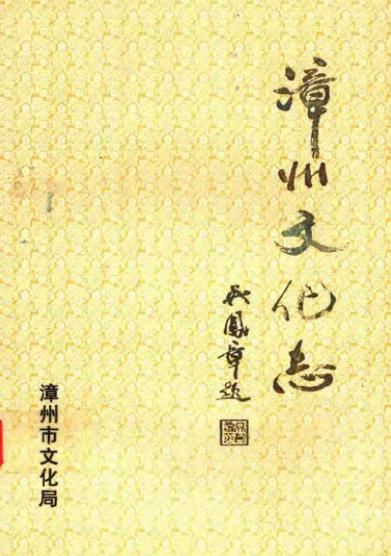 漳州文化志
吴凤章题
漳州市文化局